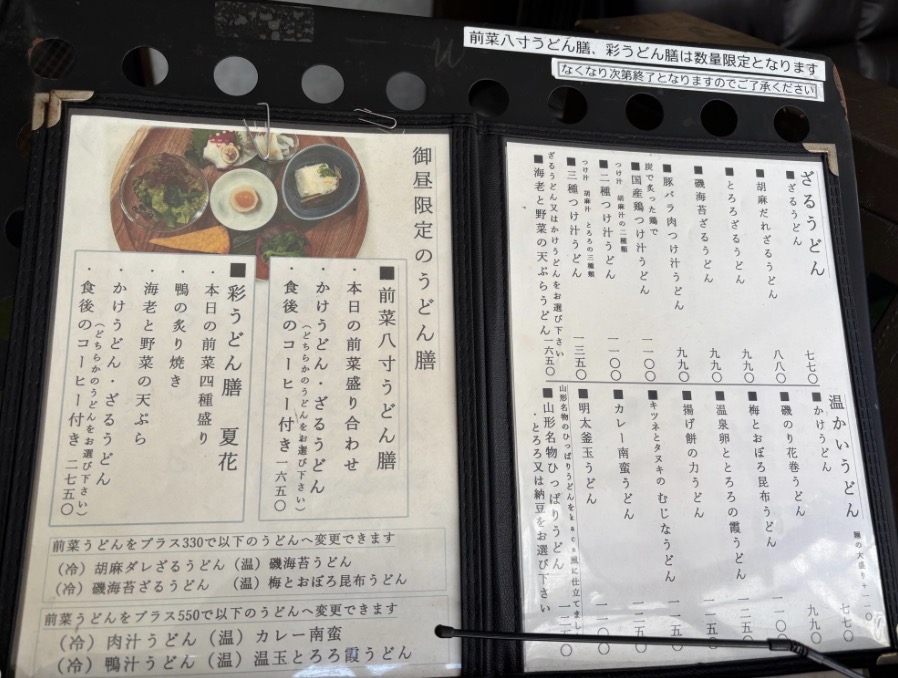 前菜八寸うどん膳、彩うどん膳は数量限定となります
なくなり次第終了となりますのでご了承ください
御昼限定のうどん膳
■前菜八寸うどん膳
・本日の前菜盛り合わせ
・かけうどん・ざるうどん
（どちらかのうどんをお選び下さい）
・食後のコーヒー付き 一六五〇
■彩うどん膳 夏花
・本日の前菜四種盛り
・鴨の炙り焼き
・海老と野菜の天ぷら
・かけうどん・ざるうどん
（どちらかのうどんをお選び下さい）
・食後のコーヒー付き 二七五〇
前菜うどんをプラス330で以下のうどんへ変更できます
（冷）胡麻ダレざるうどん（温）磯海苔うどん
（冷）磯海苔ざるうどん （温）梅とおぼろ昆布うどん
前菜うどんをプラス550で以下のうどんへ変更できます
（冷）肉汁うどん（温）カレー南蛮
（冷）鴨汁うどん（温）温玉とろろ霞うどん
ざるうどん
■ざるうどん 七七〇
■胡麻だれざるうどん 八八〇
■とろろざるうどん 九九〇
■磯海苔ざるうどん 九九〇
■豚バラ肉つけ汁うどん 九九〇
炭で炙った鶏で
■国産鶏つけ汁うどん 一一〇〇
つけ汁 胡麻汁の二種類
■二種つけ汁うどん 一一〇〇
つけ汁 胡麻汁 とろろの三種類
■三種つけ汁うどん 一三五〇
ざるうどん又はかけうどんをお選び下さい
■海老と野菜の天ぷらうどん 一六五〇
温かいうどん
麺の大盛り＋一一〇
■かけうどん 七七〇
■磯のり花巻うどん 九九〇
■梅とおぼろ昆布うどん 一一〇〇
■温泉卵ととろろの霞うどん
■揚げ餅の力うどん
■キツネとタヌキのむじなうどん
■カレー南蛮うどん
■明太釜玉うどん 一一〇〇
山形名物のひっぱりうどんを
■山形名物ひっぱりうどん
・とろろ又は納豆をお選び下さい